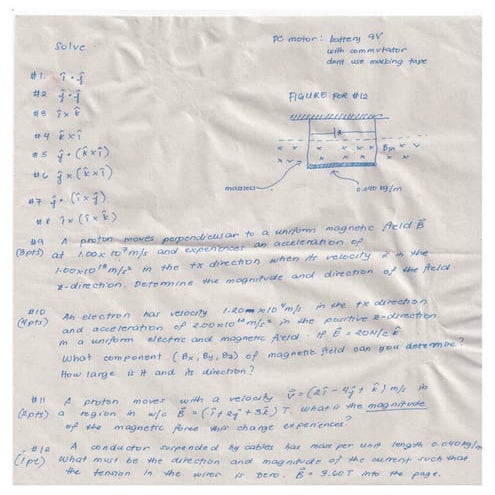 Solve
DC motor: battery 9V
with commutator
dont use masking tape
#1. î · ĵ
#2 ĵ · ĵ
#3 î x k̂
#4 k̂ x î
#5 ĵ · (k̂ x î)
#6 ĵ x (k̂ x î)
#7 ĵ · (î x ĵ)
#8 î x (î x k̂)
FIGURE FOR #12
x x x x x Bin x x
x x x x x x x
0.040 kg/m
#9 A proton moves perpendicular to a uniform magnetic field B⃗
(3pts) at 1.00 x 10⁷ m/s and experiences an acceleration of
1.00x10¹³ m/s² in the +x direction when its velocity is in the
z-direction. Determine the magnitude and direction of the field
#10 An electron has velocity 1.20 x 10⁴ m/s in the +x direction
(4pts) and acceleration of 2.00x10¹² m/s² in the positive z-direction
in a uniform electric and magnetic field. If E⃗ = 20N/c k̂
What component (Bx, By, Bz) of magnetic field can you determine?
How large is it and its direction?
#11 A proton moves with a velocity v⃗ = (2î - 4ĵ + k̂) m/s in
(2pts) a region in w/c B⃗ = (î + 2ĵ + 3k̂) T. What is the magnitude
of the magnetic force this charge experiences?
#12 A conductor suspended by cables has mass per unit length 0.040 kg/m
(1pt) What must be the direction and magnitude of the current such that
the tension in the wires is zero. B⃗ = 3.60T into the page.